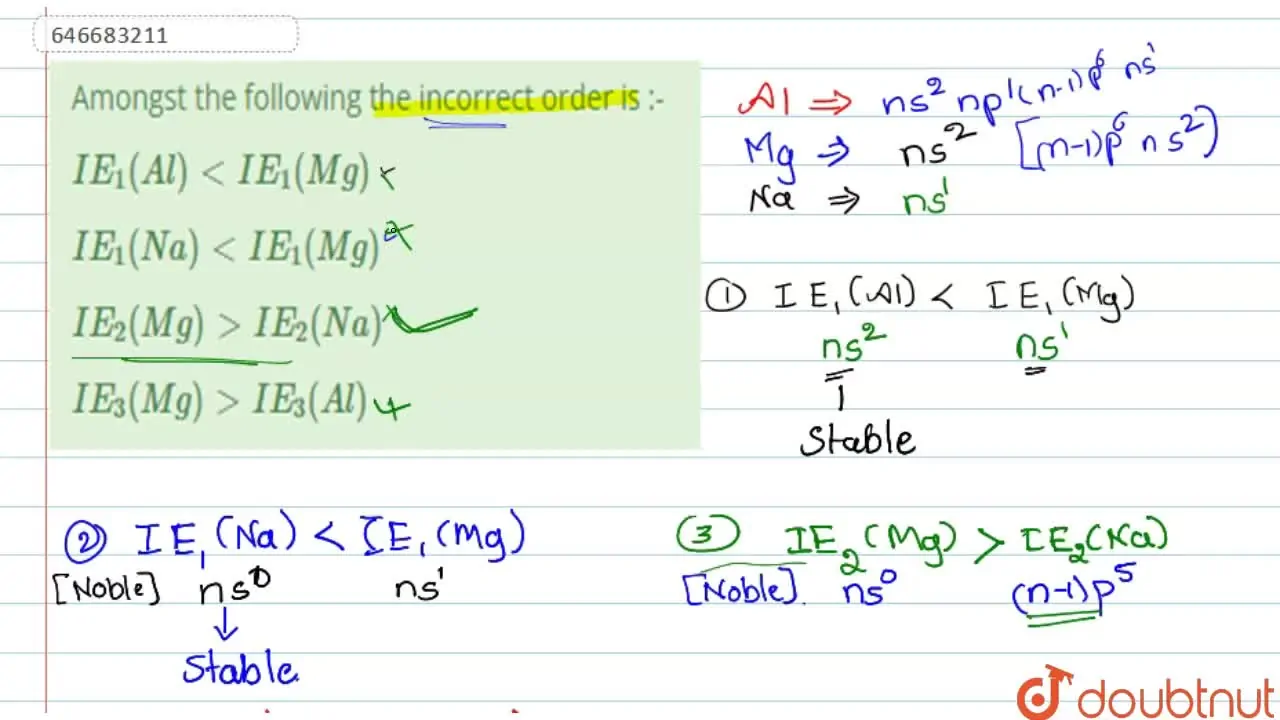 646683211
Amongst the following the incorrect order is :-
IE₁(Al) < IE₁(Mg)
IE₁(Na) < IE₁(Mg)
IE₂(Mg) > IE₂(Na)
IE₃(Mg) > IE₃(Al)
Al ⇒ ns² np¹ (n-1)p⁶ ns¹
Mg ⇒ ns² [(n-1)p⁶ ns²)
Na ⇒ ns¹
① IE₁(Al) < IE₁(Mg)
ns² ns¹
Stable
② IE₁(Na) < IE₁(Mg)
[Noble] ns⁰ ns¹
Stable
③ IE₂(Mg) > IE₂(Na)
[Noble]. ns⁰ (n-1)p⁵
doubtnut